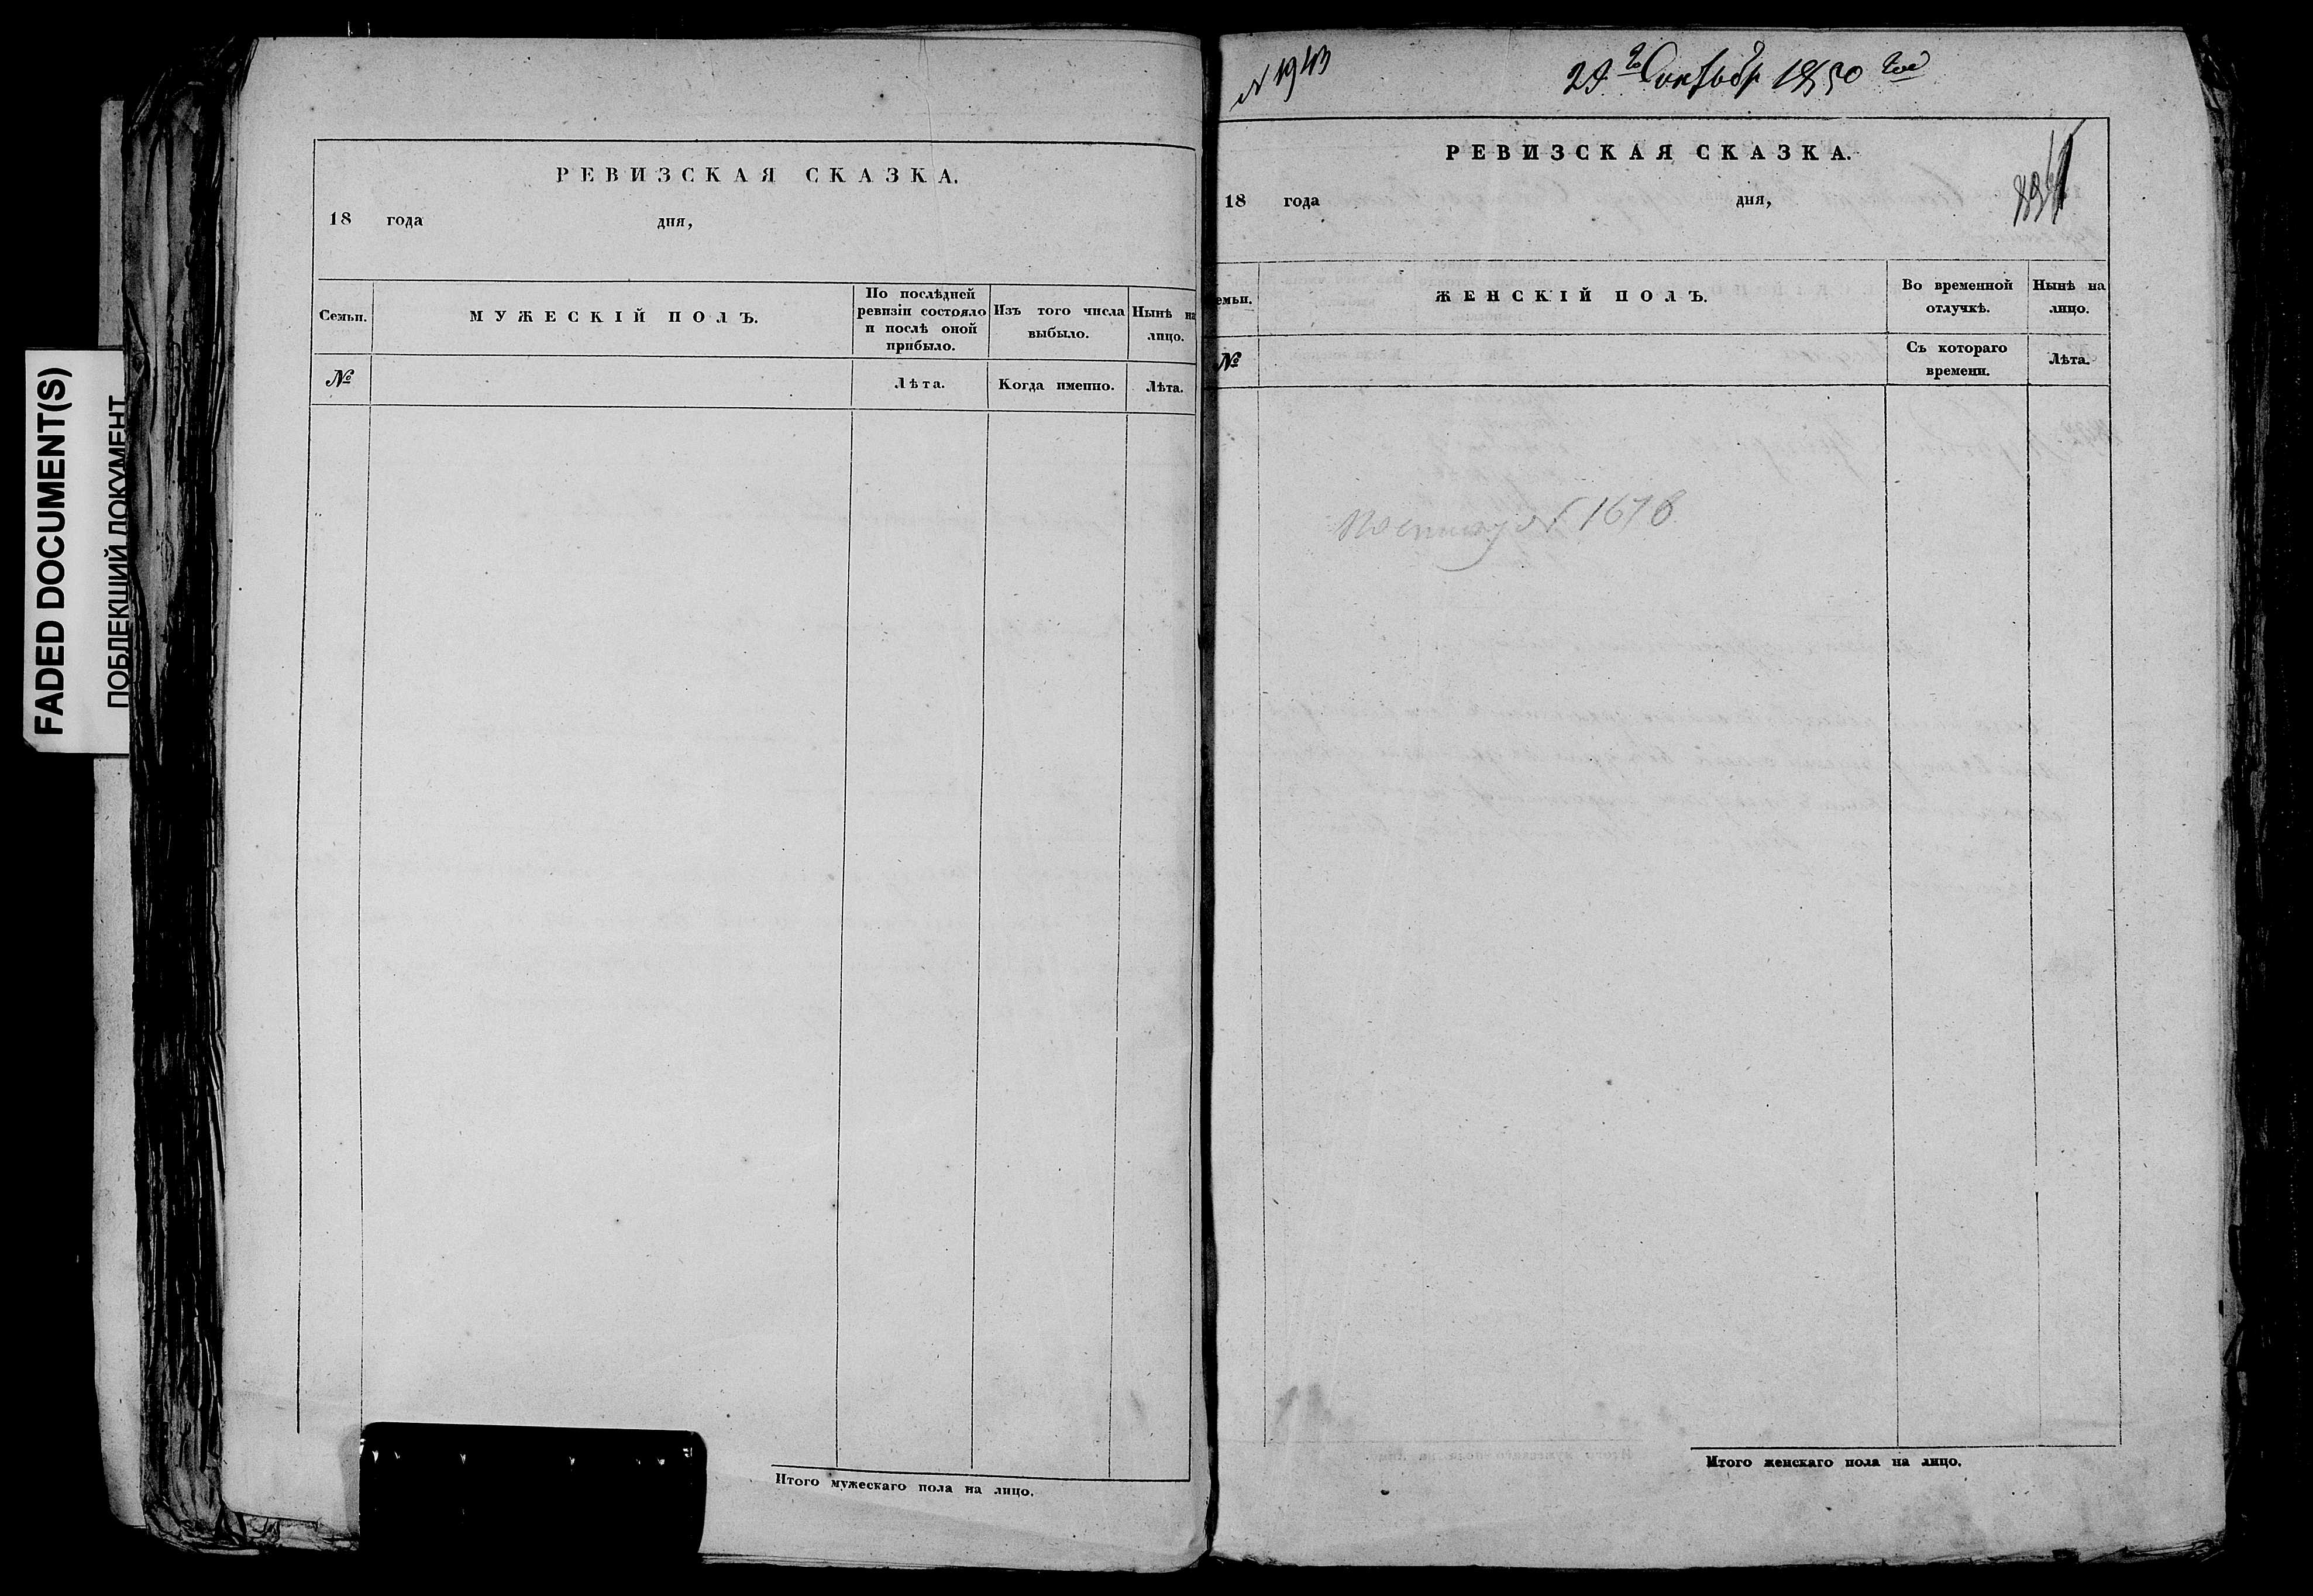 FADED DOCUMENT(S)
ПОБЛЕКШИЙ ДОКУМЕНТ
РЕВИЗСКАЯ СКАЗКА.
18 года дня,
Семьи.
МУЖЕСКІЙ ПОЛЪ.
По послѣдней
ревизіи состояло
и послѣ оной
прибыло.
Изъ того числа
выбыло.
Нынѣ на
лицо.
№
Лѣта.
Когда именно.
Лѣта.
Итого мужескаго пола на лицо.
№ 1943
29го Октября 1850 года
РЕВИЗСКАЯ СКАЗКА.
18 года дня,
емьи.
ЖЕНСКІЙ ПОЛЪ.
Во временной
отлучкѣ.
Нынѣ на
лицо.
№
Съ котораго
времени.
Лѣта.
1676
Итого женскаго пола на лицо.